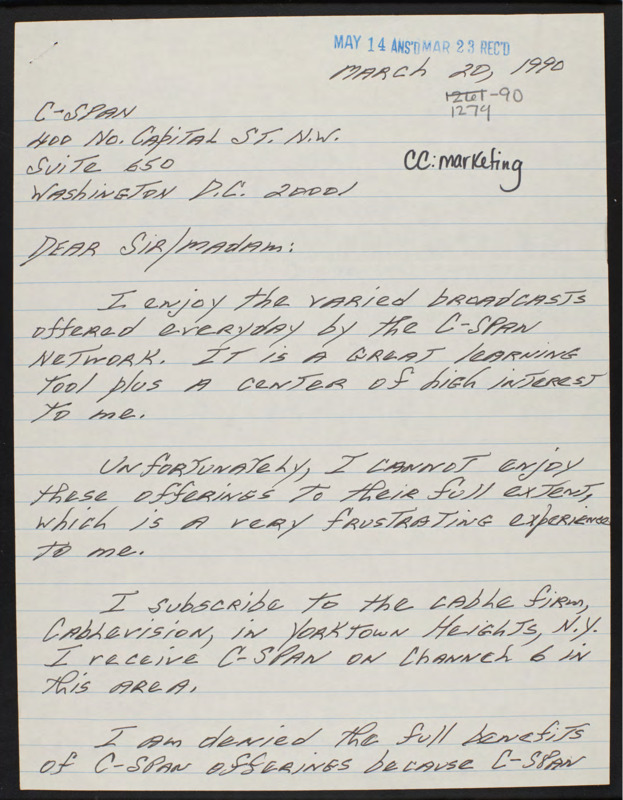 MAY 14 ANS'D MAR 23 REC'D
MARCH 20, 1990
1261-90
1279
C-SPAN
400 No. CAPITAL ST. N.W.
SUITE 650
WASHINGTON D.C. 20001
CC: marketing
DEAR SIR/MADAM:
I enjoy the varied broadcasts
offered everyday by the C-SPAN
NETWORK. IT is A GREAT learning
tool plus A center of high interest
to me.
Unfortunately, I cannot enjoy
these offerings to their full extent,
which is A very frustrating experience
to me.
I subscribe to the cable firm,
Cablevision, in Yorktown Heights, N.Y.
I receive C-SPAN on Channel 6 in
this area.
I am denied the full benefits
of C-SPAN offerings because C-SPAN